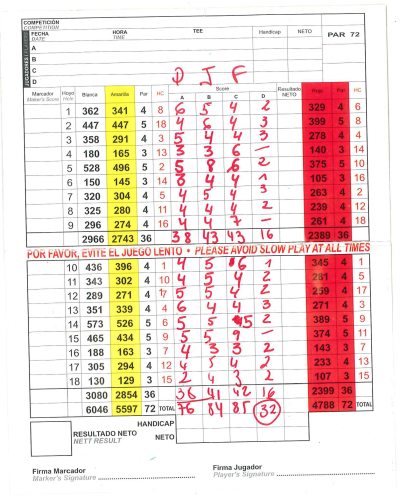 COMPETICIÓN
COMPETITION
FECHA HORA TEE Handicap NETO PAR 72
DATE TIME
A
B
C
D
JUGADORES
D J F
Marcador Hoyo Blanca Amarilla Par HC Score Resultado Roja Par HC
Marker's Score Hole A B C D NETO
1 362 341 4 8 6 5 4 2 329 4 6
2 447 447 5 18 4 6 4 3 399 5 8
3 358 291 4 3 5 4 4 3 278 4 4
4 180 165 3 13 3 3 6 – 140 3 14
5 528 496 5 2 5 8 6 2 375 5 10
6 150 145 3 14 4 4 1 105 3 16
7 320 304 4 5 4 5 4 3 263 4 2
8 325 280 4 11 4 4 4 2 239 4 12
9 296 274 4 16 4 4 7 – 261 4 18
2966 2743 36 38 43 43 16 2389 36
POR FAVOR, EVITE EL JUEGO LENTO • PLEASE AVOID SLOW PLAY AT ALL TIMES
10 436 396 4 1 4 5 6 1 345 4 1
11 343 302 4 10 4 5 4 2 281 4 5
12 289 271 4 17 5 5 4 2 259 4 17
13 351 339 4 4 6 4 4 3 271 4 3
14 573 526 5 6 5 5 5 2 389 5 9
15 465 434 5 9 5 5 9 – 374 5 11
16 188 163 3 7 4 3 3 2 143 3 7
17 305 294 4 12 4 5 4 2 233 4 13
18 130 129 3 15 2 4 3 2 107 3 15
3080 2854 36 36 41 42 16 2399 36
6046 5597 72 TOTAL 76 84 85 32 4788 72 TOTAL
HANDICAP
RESULTADO NETO NETO
NETT RESULT
Firma Marcador Firma Jugador
Marker's Signature Player's Signature